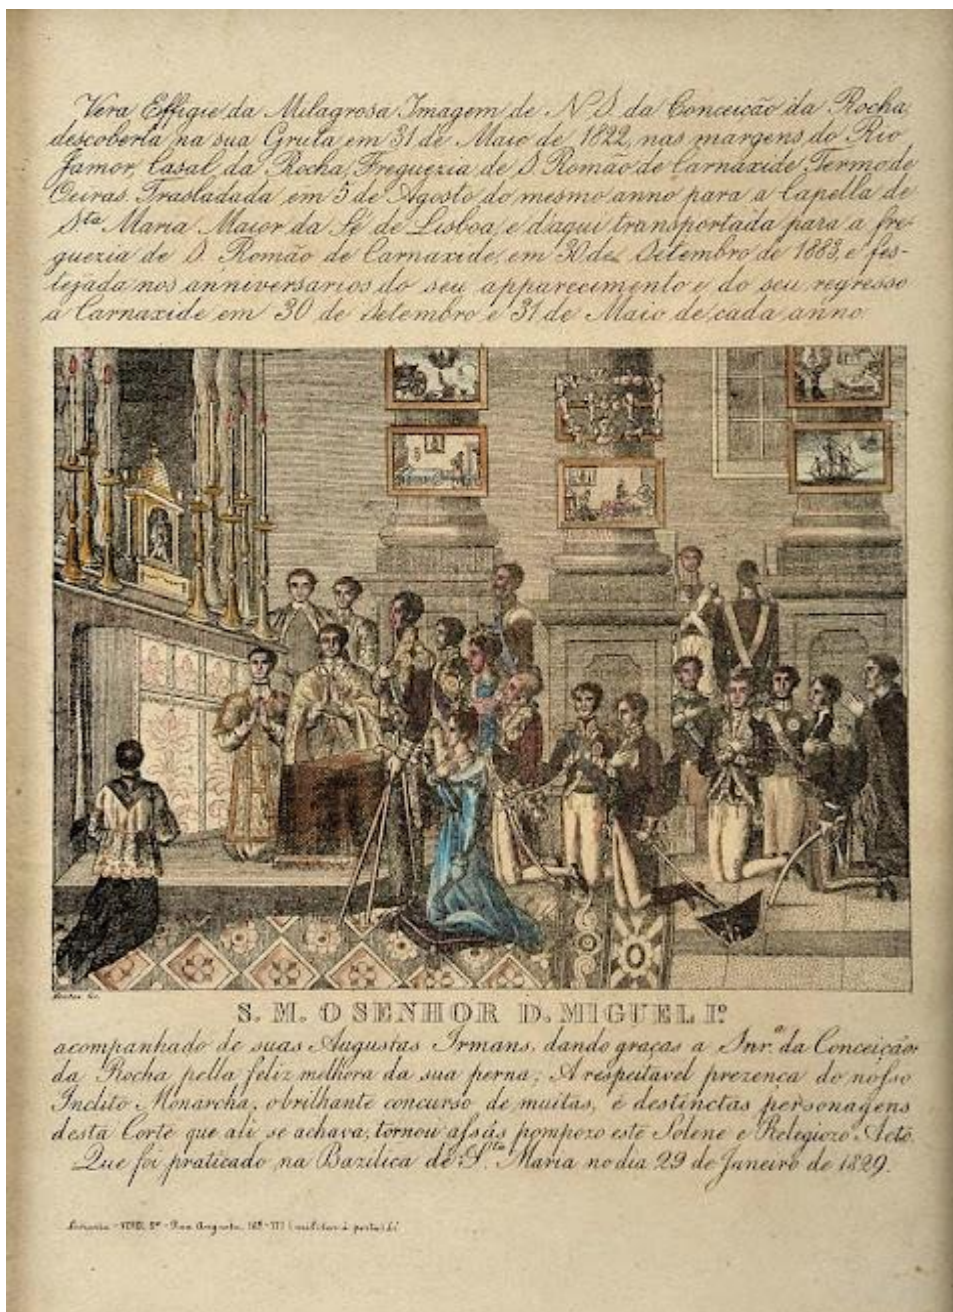 Vera Effigie da Milagrosa Imagem de N S. da Conceição da Rocha
descoberta na sua Gruta em 31 de Maio de 1822, nas margens do Rio
Jamor, Casal da Rocha, Freguezia de S. Romão de Carnaxide Termo de
Oeiras. Trasladada em 5 de Agosto do mesmo anno para a Capella de
Sta Maria Maior da Sé de Lisboa, e d'aqui transportada para a fre-
guezia de S. Romão de Carnaxide, em 30 de Setembro de 1883, e fes-
tejada nos anniversarios do seu apparecimento e do seu regresso
a Carnaxide em 30 de Setembro e 31 de Maio de cada anno.
S. M. O SENHOR D. MIGUEL I.º
acompanhado de suas Augustas Irmans, dando graças a Snr.ª da Conceição
da Rocha pella feliz melhora da sua perna; A respeitavel prezença do nosso
Inclito Monarcha, o brilhante concurso de muitas, e destinctas personagens
desta Corte que ali se achava, tornou assás pompozo este Solene e Relegiozo Acto.
Que foi praticado na Bazilica de S.ta Maria no dia 29 de Janeiro de 1829.
Rua Augusta,